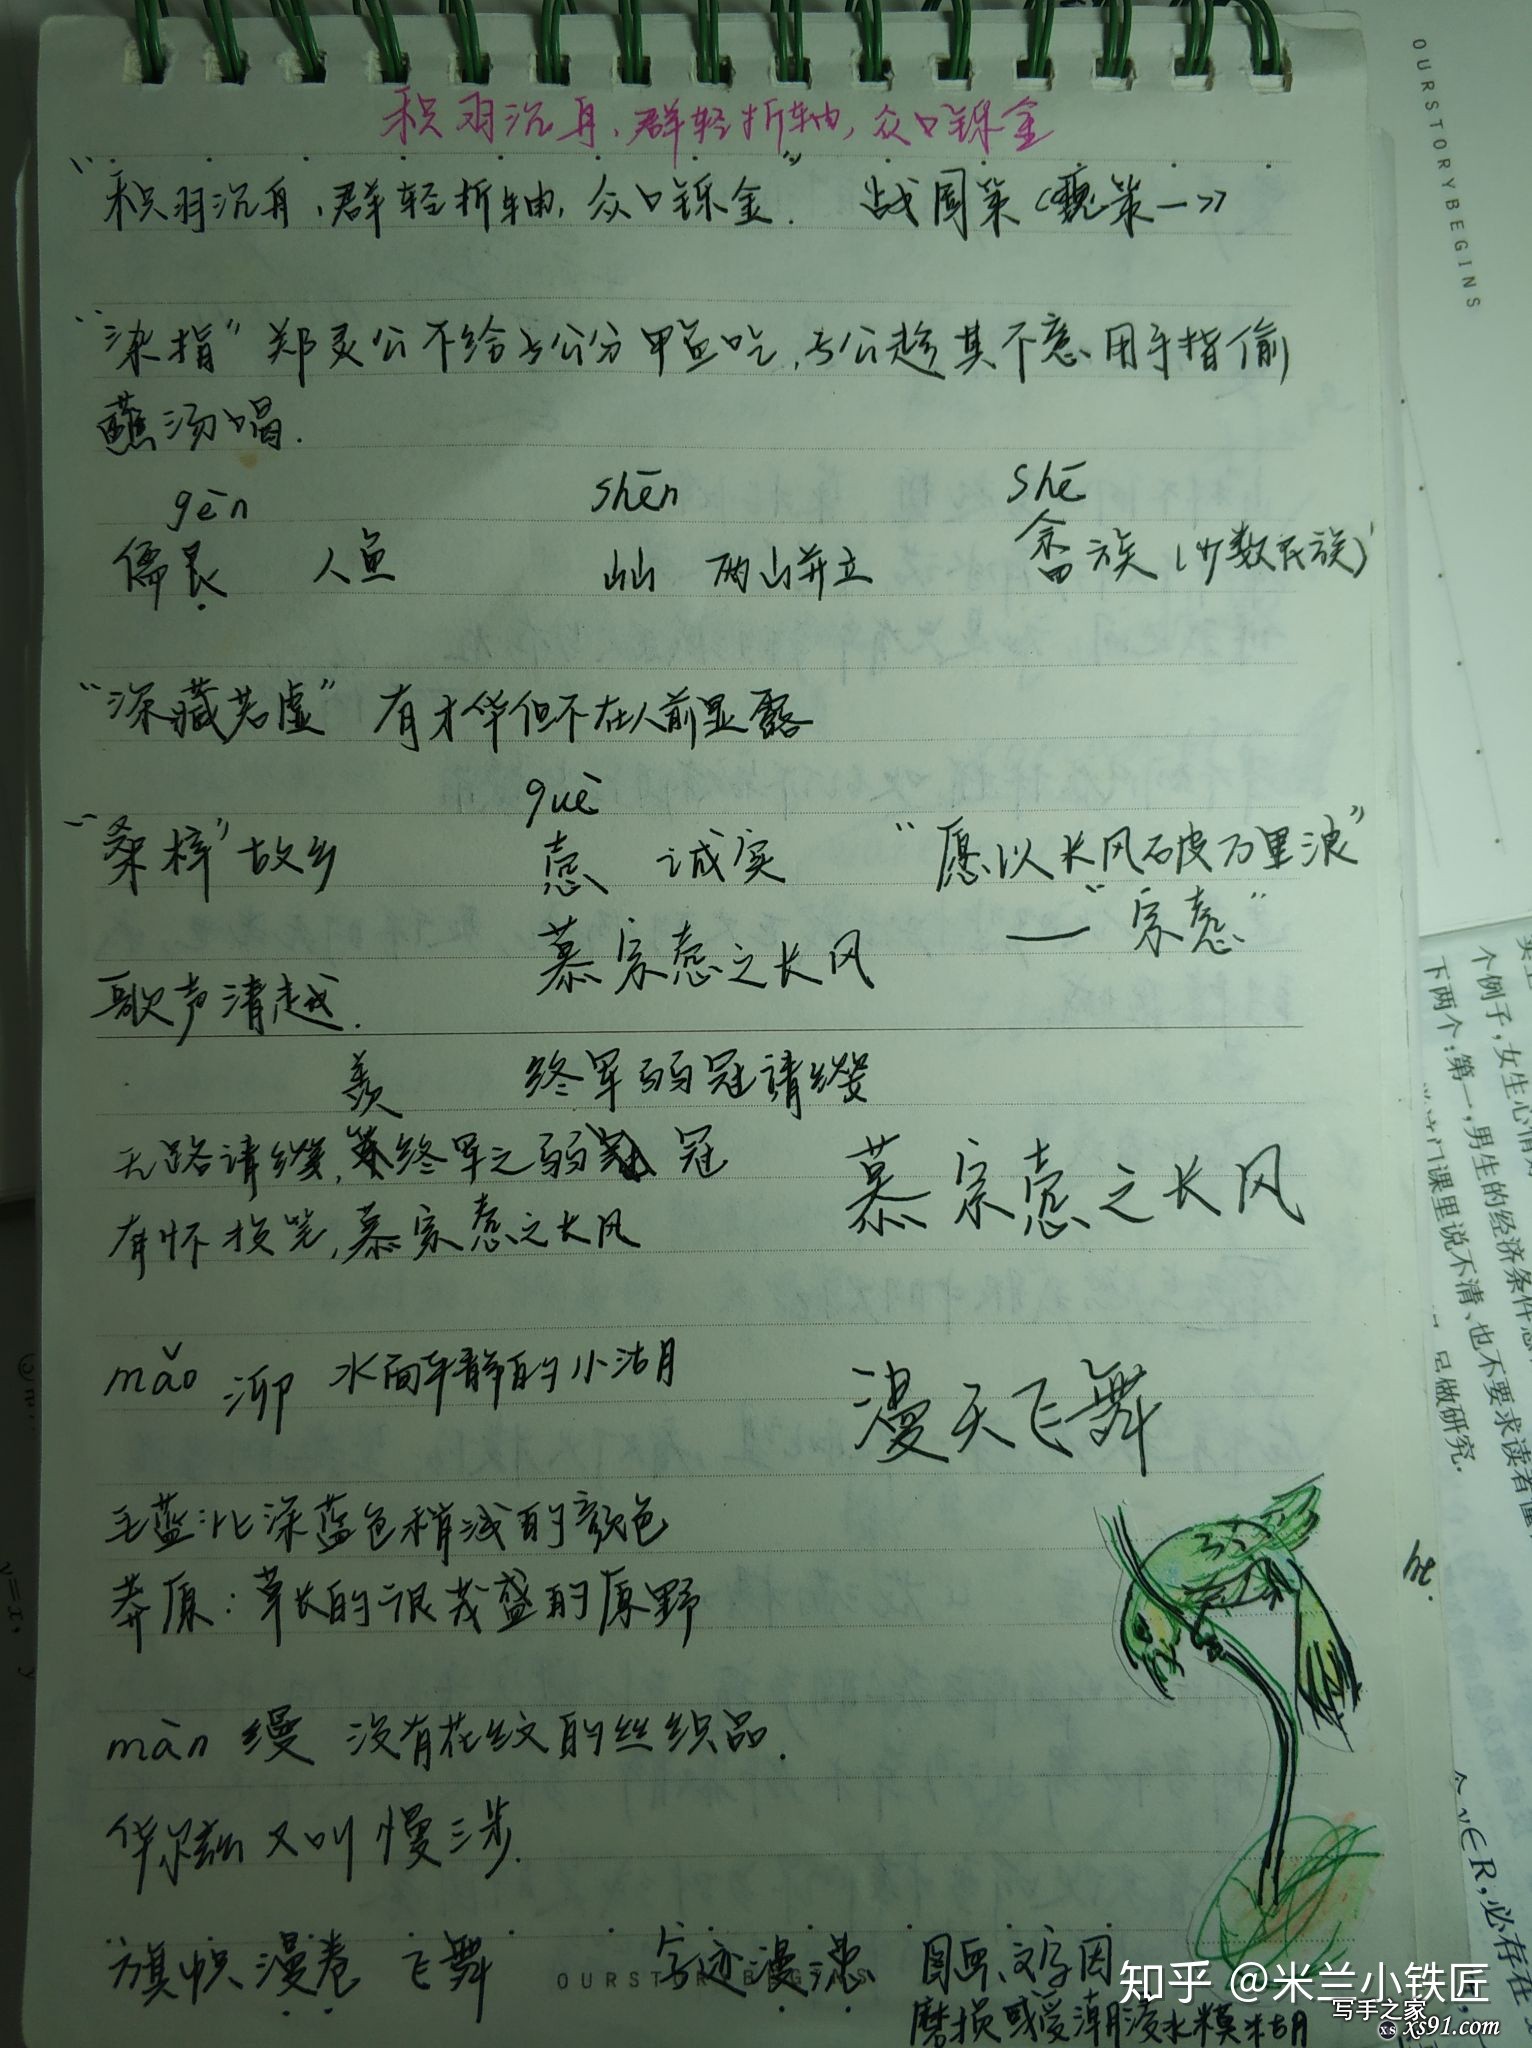 积羽沉舟，群轻折轴，众口铄金
"积羽沉舟，群轻折轴，众口铄金". 战国策《魏策一》
"染指" 郑灵公不给子公分甲鱼吃，子公趁其不意、用手指偷
蘸汤喝.
gēn shēn shē
儒艮 人鱼 屾 两山并立 畲族（少数民族）
"深藏若虚" 有才华但不在人前显露
quē
"桑梓" 故乡 悫 诚实 "愿以长风破万里浪"
——"宗悫"
慕宗悫之长风
歌声清越.
羡 终军弱冠请缨
无路请缨，终军之弱冠
有怀投笔，慕宗悫之长风
慕宗悫之长风
mǎo 泖 水面平静的小湖
漫天飞舞
毛蓝：比深蓝色稍浅的颜色
莽原：草长的很茂盛的原野
màn 缦 没有花纹的丝织品.
华尔兹 又叫 慢三步.
旗帜漫卷 飞舞 字迹漫漶 图画、文字因
磨损或受潮浸水模糊
OURSTORYBEGINS
OURSTORYBEGINS
个例子，女生心情
下两个：第一，男生的经济条件
门课里说不清、也不要求读者
做研究.
ht.
∈R，必存在
知乎 @米兰小铁匠
写手之家
xs91.com